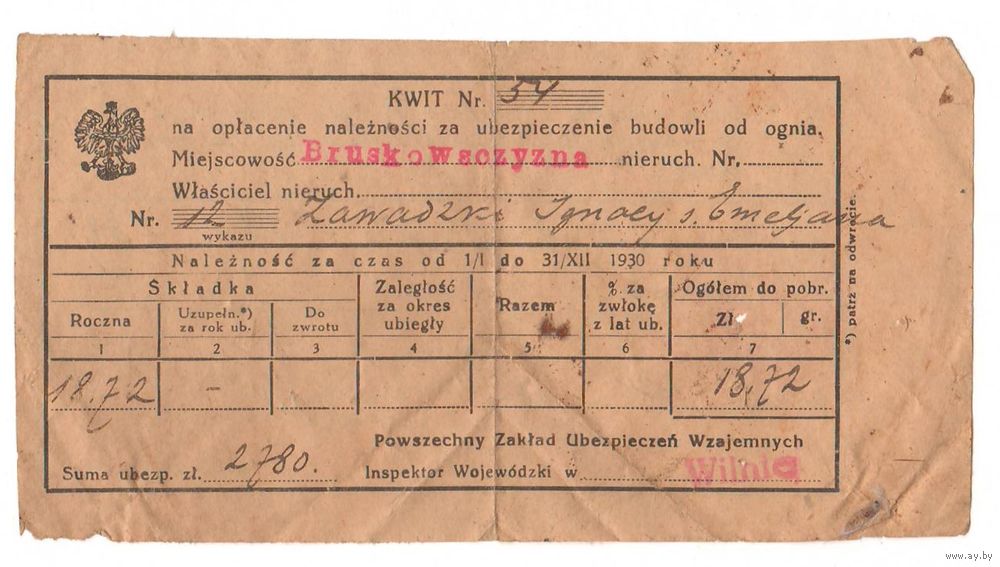 KWIT Nr. 54
na opłacenie należności za ubezpieczenie budowli od ognia.
Miejscowość Bruskowsczyzna nieruch. Nr.
Właściciel nieruch.
Nr. 12 Zawadzki Ignacy s. Emeljana
wykazu
Należność za czas od 1/I do 31/XII 1930 roku
Składka
Roczna
Uzupełn.*) za rok ub.
Do zwrotu
Zaległość za okres ubiegły
Razem
% za zwłokę z lat ub.
Ogółem do pobr.
Zł. gr.
1 2 3 4 5 6 7
18.72 – 18,72
Powszechny Zakład Ubezpieczeń Wzajemnych
Suma ubezp. zł. 2780. Inspektor Wojewódzki w Wilnie
*) patrz na odwrocie.
www.ay.by